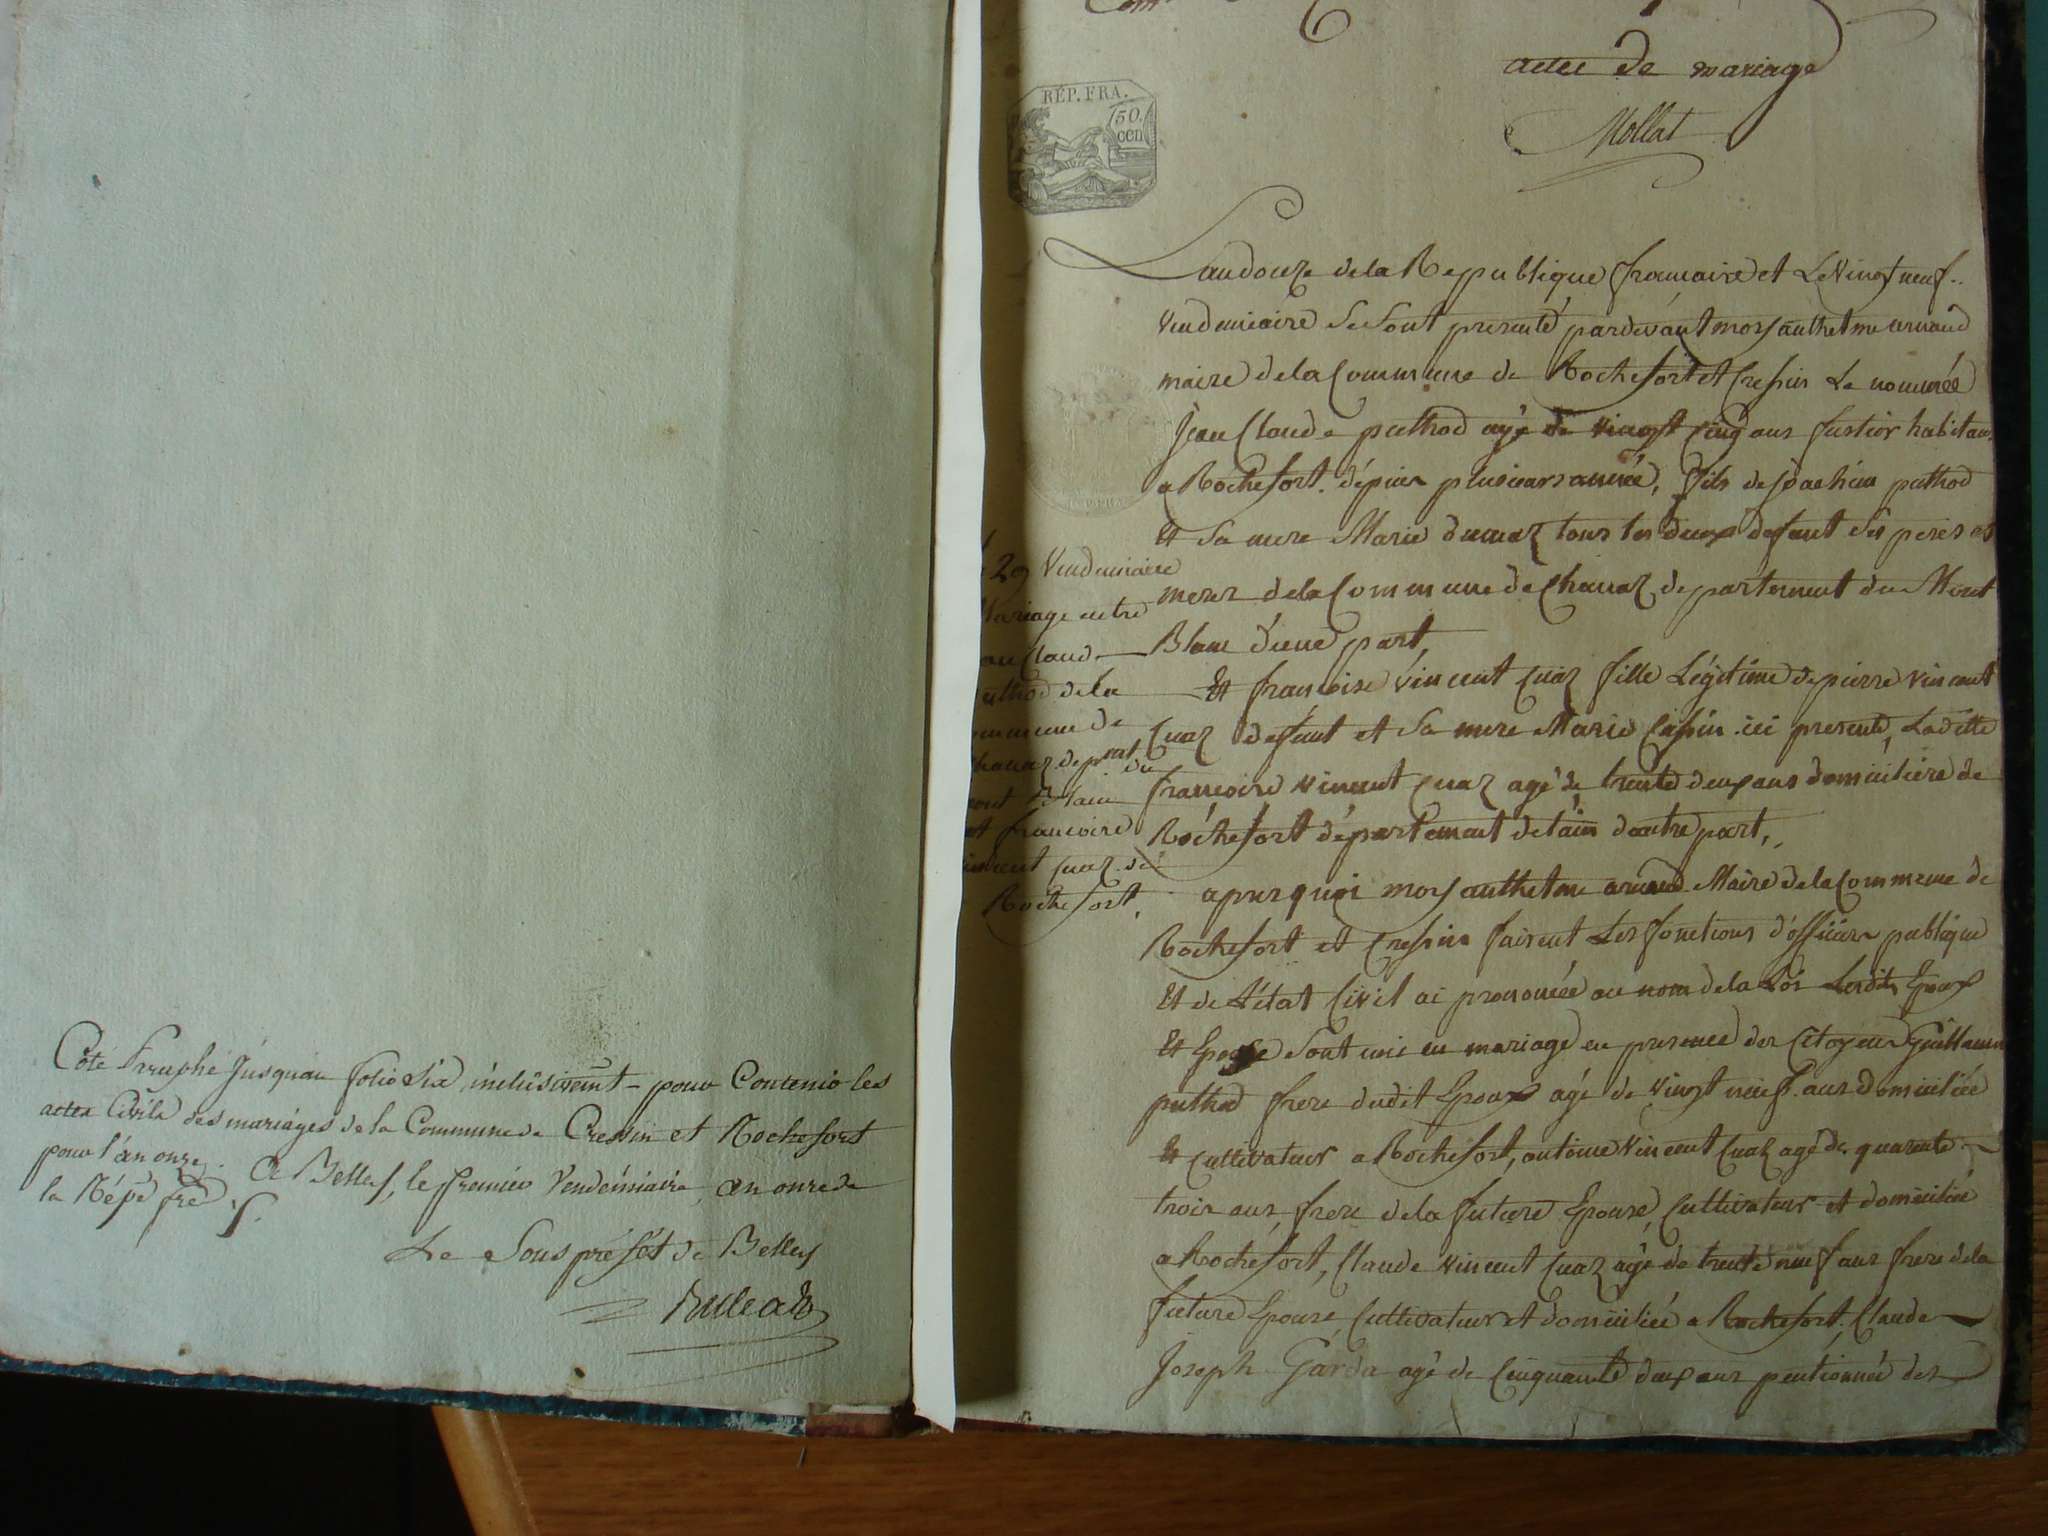 Coté Paraphé jusquau folio six inclusivemt - pour Contenir les
actes Civils des mariages de la Commune de Cressin et Rochefort
pour l'an onze. A Belley, le premier Vendémiaire an onze de
la Rép. fre
Le Sous préfet de Belley
actes de mariage
Mollat
RÉP. FRA.
50.
cen
Landouze dela Republique francaire et Le Vingt neuf..
Vendemieaire Se Sont presenté pardevant moy anthelme arnaud
maire dela Commune de Rochefort et Cressin Le nommée
Jean Claude puthod agé de vingt cinq ans fustier habitans
a Rochefort. dépuis plusieurs année, fils de Joachim puthod
Et Sa mere Marie dumaz tous les deux defunt Ses peres et
meres dela Commune de Chanaz departement du Mont
Blanc d'une part,
Et francoise Vincent Cuaz fille Légitime de pierre Vincent
Cuaz defunt et Sa mere Marie Cassin ici presente, Ladite
francoise vincent Cuaz agé de trente deux ans domiciliére de
Rochefort département de lain dautre part,
apres quoi moy anthelme arnaud Maire dela Commune de
Rochefort et Cressin faisent Les fonctions d'officier publique
Et de L'état Civil ai prononcée au nom dela Loi Lesdits Epoux
Et Epouse Sont uni en mariage en presence des Citoyens Guillaume
puthod frere dudit Epoux agé de Vingt neuf ans domiciliée
Et Cultivateur a Rochefort, antoine Vincent Cuaz agé de quarente
trois ans, frere dela future Epouse, Cultivateur et domiciliée
a Rochefort, Claude vincent Cuaz agé de trente neuf ans frere dela
future Epouse Cultivateur et domiciliée a Rochefort. Claude
Joseph Garda agé de Cinquante deux ans pentionné des
29 Vendemiaire
Mariage entre
Claude
puthod dela
Commune de
Chanaz depmt du
mont Blanc
et francoise
vincent Cuaz de
Rochefort,